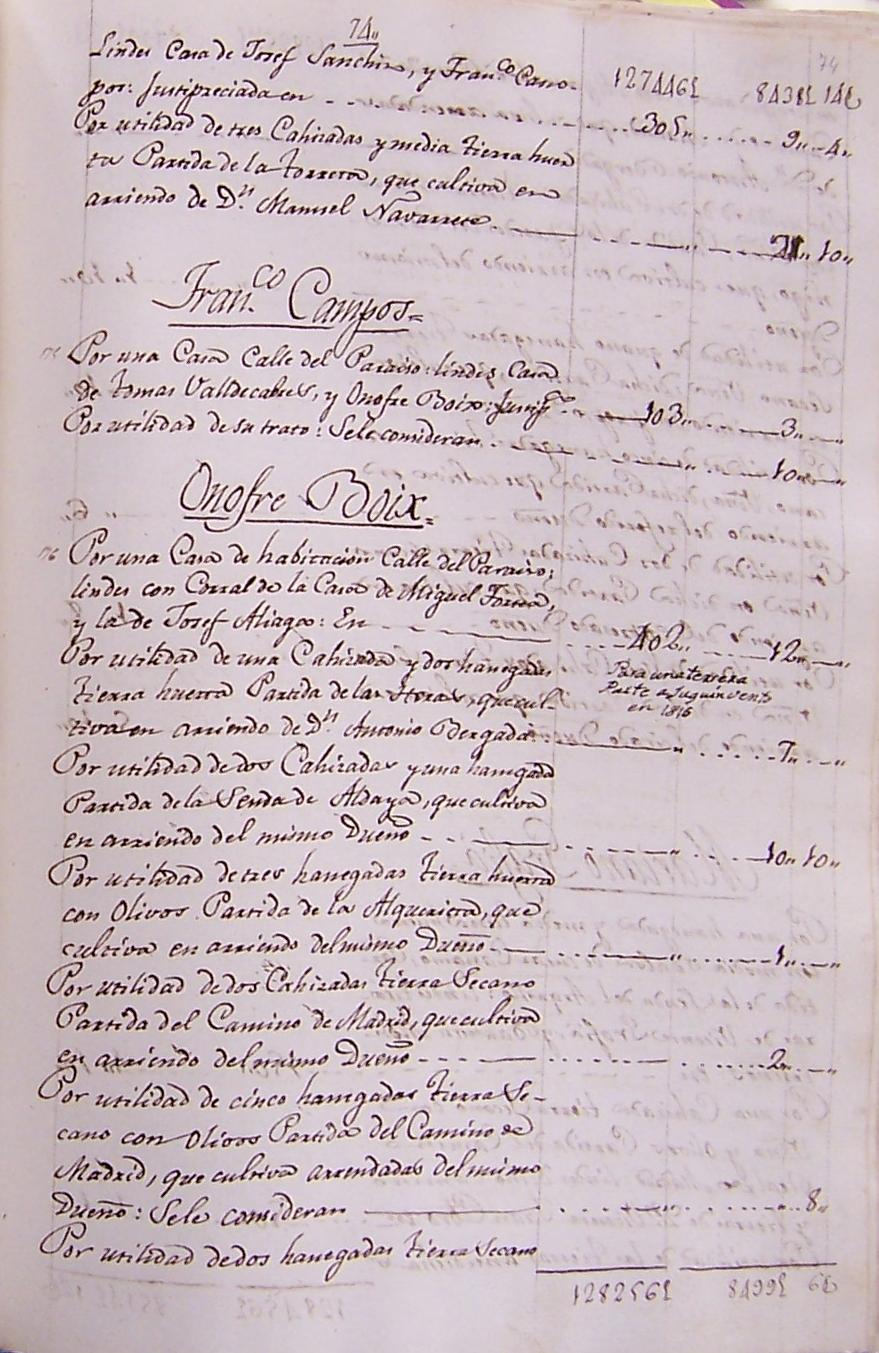 74„
74
Lindes Casa de Josef Sanchis, y Fran.co Cam- 127446£ 8438£ 14
pos: Justipreciada en - - 305„ 9„ 4„
Por utilidad de tres Cahizadas y media tierra huer
ta Partida de la Torreta, que cultiva en
arriendo de D.n Manuel Navarrete 21„ 10„
Fran.co Campos=
175 Por una Casa Calle del Paraiso: lindes Casa
de Tomas Valldecabres, y Onofre Boix: Justip.da 103„ 3„ „
Por utilidad de su trato: Sele consideran „ 10„ „
Onofre Boix=
176 Por una Casa de habitacion Calle del Paraiso;
lindes con Corral de la Casa de Miguel
y la de Josef Aliaga: En 402„ 12„ „
Por utilidad de una Cahizada y dos hanegadas
tierra huerta Partida de las que cul-
tiva en arriendo de D.n Antonio Bergada: „ 7„ „
Para una terrera
Parte a Juquin vento
en 1816
Por utilidad de dos Cahizadas y una hanegada
Partida de la Senda de Aldaya, que cultiva
en arriendo del mismo Dueño - - „ 10„ 10„
Por utilidad de tres hanegadas tierra huerta
con Olivos Partida de la Alquerieta, que
cultiva en arriendo del mismo Dueño „ 1„ „
Por utilidad de dos Cahizadas tierra Secano
Partida del Camino de Madrid, que cultiva
en arriendo del mismo Dueño - - - 2„ „
Por utilidad de cinco hanegadas tierra Se-
cano con Olivos Partida del Camino de
Madrid, que cultiva arrendadas del mismo
Dueño: Sele consideran „ 8„
Por utilidad de dos hanegadas tierra Secano
128256£ 8499£ 6